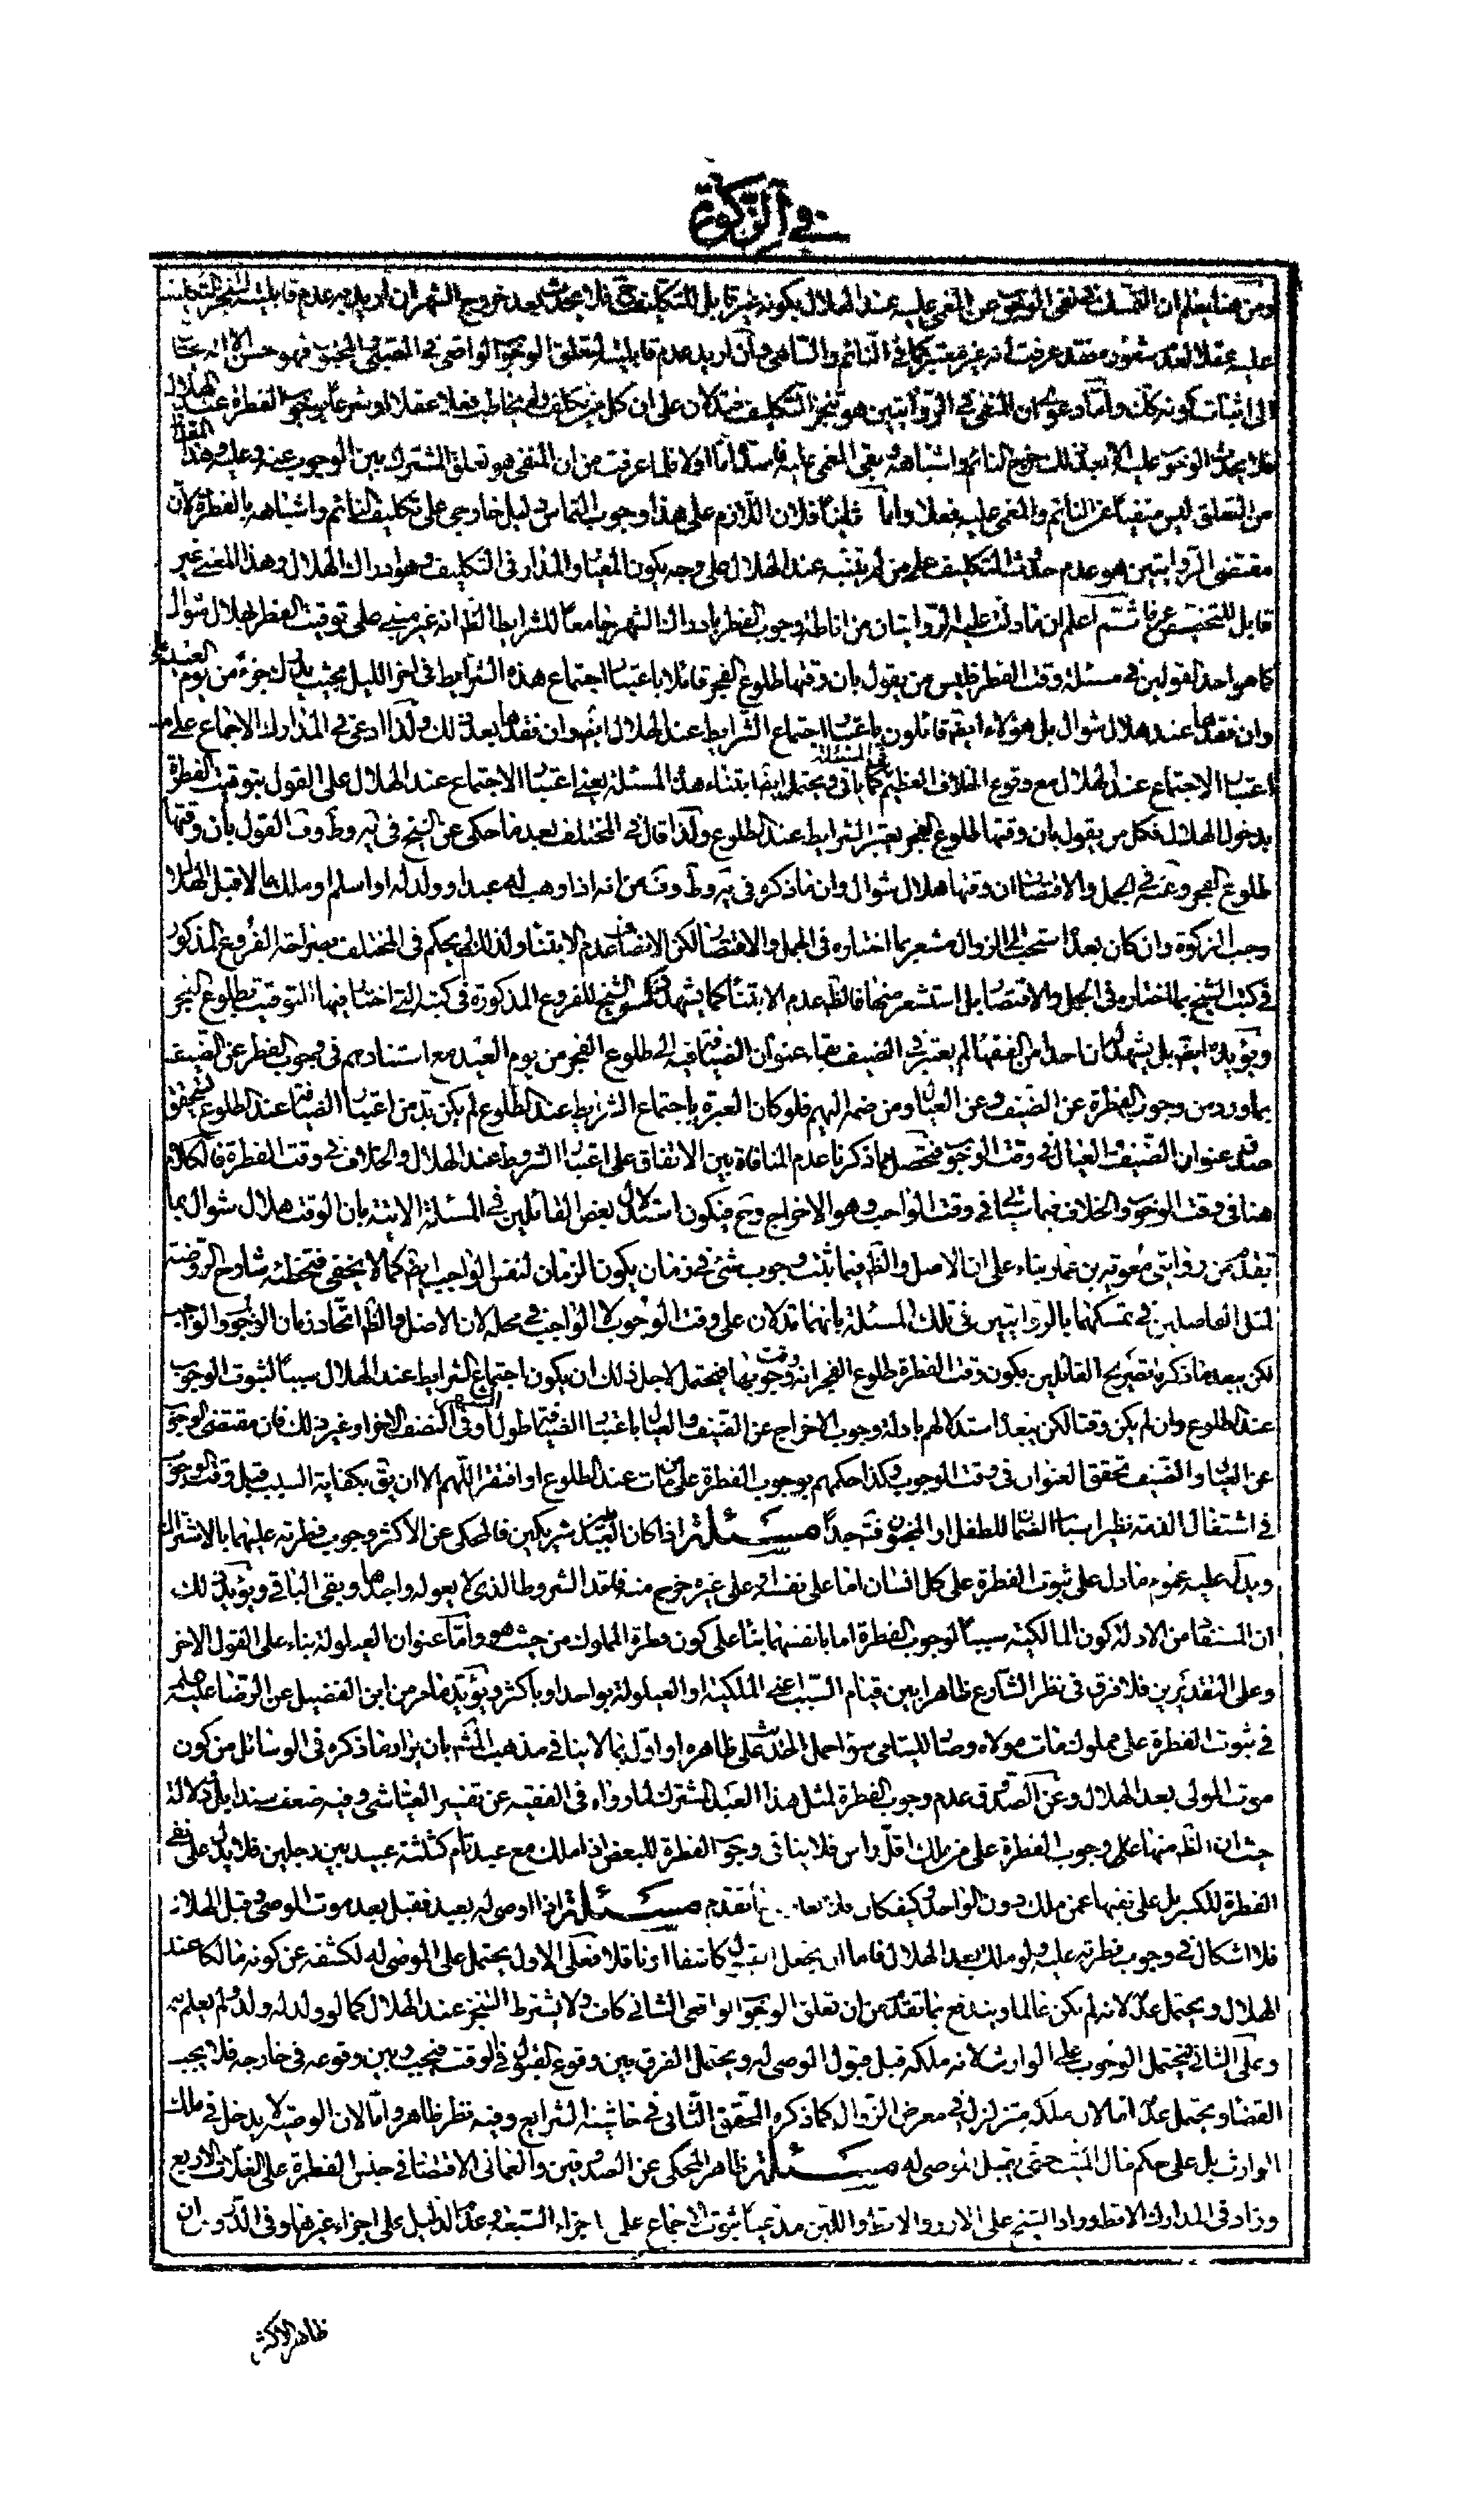 في الزكوة
ومن هنا يعلم ان التمسك في نفى الوجوب عن المغمى عليه عند الهلال بكونه غير قابل للتكليف ح فلا يحدث بعد خروج الشهر ان اريد به عدم قابليته لتنجز التكليف
عليه عقلا لعدم شعوره فقد عرفت انه غير معتبر كما في النائم والساهى وان اريد عدم قابليته لتعلق الوجوب الواقعى كالصبى والمجنون فهو حسن الا انه يحتاج
الى اثبات كونه كك واما دعوى ان المنفى في الروايتين هو تنجز التكليف فتدلان على ان كل من يكلف ولم يخاطب فعلا عقلا او شرعا بوجوب الفطرة عند الهلال
فلا يحدث الوجوب عليه الا بعد ذلك خرج النائم واشباهه وبقى المغمى عليه فاسدة اما اولا فلما عرفت من ان المنفى هو تعلق المشترك بين الوجوب عنه وعليه وهذا المقدار
من التعلق ليس منتفيا عن النائم والمغمى عليه فعلا واما ثانيا فلان اللازم على هذا وجوب التماس دليل خارجى على تكليف النائم واشباهه بالفطرة لان
مقتضى الروايتين هو عدم حدوث التكليف على من لم يتنبه عند الهلال على وجه يكون المعيار والمدار في التكليف هو ادراك الهلال وهذا المعنى غير
قابل للتخصيص عرفا ثم اعلم ان ما دلت عليه الروايتان من اناطة وجوب الفطرة بادراك الشهر جامعا للشرايط الظ انه غير مبنى على توقيت الفطرة بهلال شوال
كما هو احد القولين في مسئلة وقت الفطرة فليس من يقول بان وقتها طلوع الفجر قائلا باعتبار اجتماع هذه الشرايط في اخر الليل بحيث يدرك جزء من يوم العيد
وان فقدها عند هلال شوال بل هؤلاء ايضا قائلون باعتبار اجتماع الشرايط عند الهلال ايضا وان فقدها بعد ذلك ولذا ادعى في المدارك الاجماع على
اعتبار الاجتماع عند الهلال مع وقوع الخلاف العظيم في المسئلة كما ياتى ويحتمل ايضا ابتناء هذه المسئلة يعنى اعتبار الاجتماع عند الهلال على القول بتوقيت الفطرة
بدخول الهلال فكل من يقول بان وقتها طلوع الفجر يعتبر الشرايط عند الطلوع ولذا قال في المختلف بعد ما حكى عن الشيخ في يه وط وف القول بان وقتها
طلوع الفجر وعنه في الجمل والاقتصاد ان وقتها هلال شوال وان ما ذكره في يه وط وف من انه اذا وهب له عبدا وولد له او اسلم او ملك مالا قبل الهلال
وجب الزكوة وان كان بعده استحب الى الزوال مشعر بما اختاره في الجمل والاقتصاد لكن الانصاف عدم الابتناء ولذا لم يحكم في المختلف بصراحة الفروع المذكورة
في كتب الشيخ بما اختاره في الجمل والاقتصاد بل استشعر منها فالظ عدم الابتناء كما يشهد له ذكر الشيخ للفروع المذكورة في كتبه التى اختار فيها التوقيت بطلوع الفجر
ويؤيده ايضا بل يشهد له ان احدا من الفقهاء لم يعتبر في الضيف بقاء عنوان الضيافة فيه الى طلوع الفجر من يوم العيد مع استنادهم في وجوب الفطرة عن الضيف
بما ورد من وجوب الفطرة عن الضيف وعن العيال ومن ضمه اليهم فلو كان العبرة باجتماع الشرايط عند الطلوع لم يكن بد من اعتبار الضيافة عند الطلوع ليتحقق
صدق عنوان الضيف والعيال في وقت الوجوب فتحصل مما ذكرنا عدم المنافاة بين الاتفاق على اعتبار الشروط عند الهلال والخلاف في وقت الفطرة فالكلام
هنا في وقت الوجوب والخلاف فيما ياتى في وقت الواجب وهو الاخراج وح فيكون استدلال بعض القائلين في المسئلة الاتية بان الوقت هلال شوال بما
تقدم من روايتى معوية بن عمار بناء على ان الاصل والظ فيما يثبت وجوب شئ في زمان يكون الزمان لنفس الواجب ايضا كما لا يخفى فتخطئة شارح الروضة
لمثل الفاضلين في تمسكهما بالروايتين في تلك المسئلة بانهما تدلان على وقت الوجوب لا الواجب في محله لان الاصل والظ اتحاد زمان الوجوب والواجب
لكن يبعد ما ذكرنا تصريح القائلين بكون وقت الفطرة طلوع الفجر انه وقت وجوبها فيحتمل لاجل ذلك ان يكون اجتماع الشرايط عند الهلال سببا لثبوت الوجوب
عند الطلوع وان لم يكن وقتا لكن يبعده استدلالهم بادلة وجوب الاخراج عن الضيف والعيال باعتبار الضيافة طول الشهر او في النصف الاخر او غير ذلك فان مقتضى الوجوب
عن العيال والضيف تحقق العنوان في وقت الوجوب وكذا حكمهم بوجوب الفطرة على من مات عند الطلوع او افتقر اللهم الا ان يق بكفاية السبب قبل وقت الوجوب
في اشتغال الذمة نظير اسباب الضمان للطفل او المجنون فت جدا مسئلة اذا كان العبد بين شريكين فالمحكى عن الاكثر وجوب فطرته عليهما بالاشتراك
ويدل عليه عموم ما دل على ثبوت الفطرة على كل انسان اما على نفسه او على غيره خرج منه فاقد الشروط الذى لا يعوله واجدها وبقى الباقي ويؤيد ذلك
ان المستفاد من الادلة كون المالكية سببا لوجوب الفطرة اما بانفسها بناء على كون فطرة المملوك من حيث هو واما عنوان العيلولة بناء على القول الاخر
وعلى التقديرين فلا فرق في نظر الشارع ظاهرا بين قيام السبب اعنى الملكية او العيلولة بواحد او باكثر ويؤيده ما مر من ابن الفضيل عن الرضا عليه السلم
في ثبوت الفطرة على مملوك مات مولاه وصار لليتامى سواء حمل الحديث على ظاهره او اول بما لا ينافي مذهب المشهور بان يراد ما ذكره في الوسائل من كون
موت المولى بعد الهلال وعن الصدوق عدم وجوب الفطرة لمثل هذا العبد المشترك لما رواه في الفقيه عن تفسير العياشى وفيه ضعف سندا بل ودلالة
حيث ان الظ منها على وجوب الفطرة على من ملك اقل راس فلا ينافي وجوب الفطرة للبعض اذا ملك مع عبد تام كثلثة عبيد بين رجلين فلا يدل على نفى
الفطرة للكسر بل على نفيها عمن ملك دون الواحد وكيف كان تقدم مسئلة اذا اوصى له بعبد فقبل بعد موت الموصى وقبل الهلال
فلا اشكال في وجوب فطرته عليه ولو ملك بعد الهلال فاما ان يجعل القبول كاشفا او ناقلا فعلى الاول يحتمل على الموصى له لكشفه عن كونه مالكا عند
الهلال ويحتمل عدمه لانه لم يكن عالما ويندفع بما تقدم من ان تعلق الوجوب الواقعى الشانى كاف ولا يشترط التنجز عند الهلال كما لو ولد له ولد ولم يعلم به
وعلى الثاني فيحتمل الوجوب على الوارث لانه ملكه قبل قبول الموصى له ويحتمل الفرق بين وقوع القبول في الوقت فيجب وبين وقوعه في خارجه فلا يجب
القضاء ويحتمل عدمه اما لان ملكه متزلزل في معرض الزوال كما ذكره المحقق الثانى في حاشية الشرايع وفيه نظر ظاهر واما لان الوصية لا يدخل في ملك
الوارث بل على حكم مال الميت حتى يقبل الموصى له مسئلة ظاهر المحكى عن الصدوقين والعمانى الاقتصار في جنس الفطرة على الغلات الاربع
وزاد في المدارك الاقط وزاد الشيخ على الارز والاقط واللبن مدعيا ثبوت الاجماع على اجزاء السبعة وعدم الدليل على اجزاء غيرها وفى الدروس ان
ظاهر الاكثر